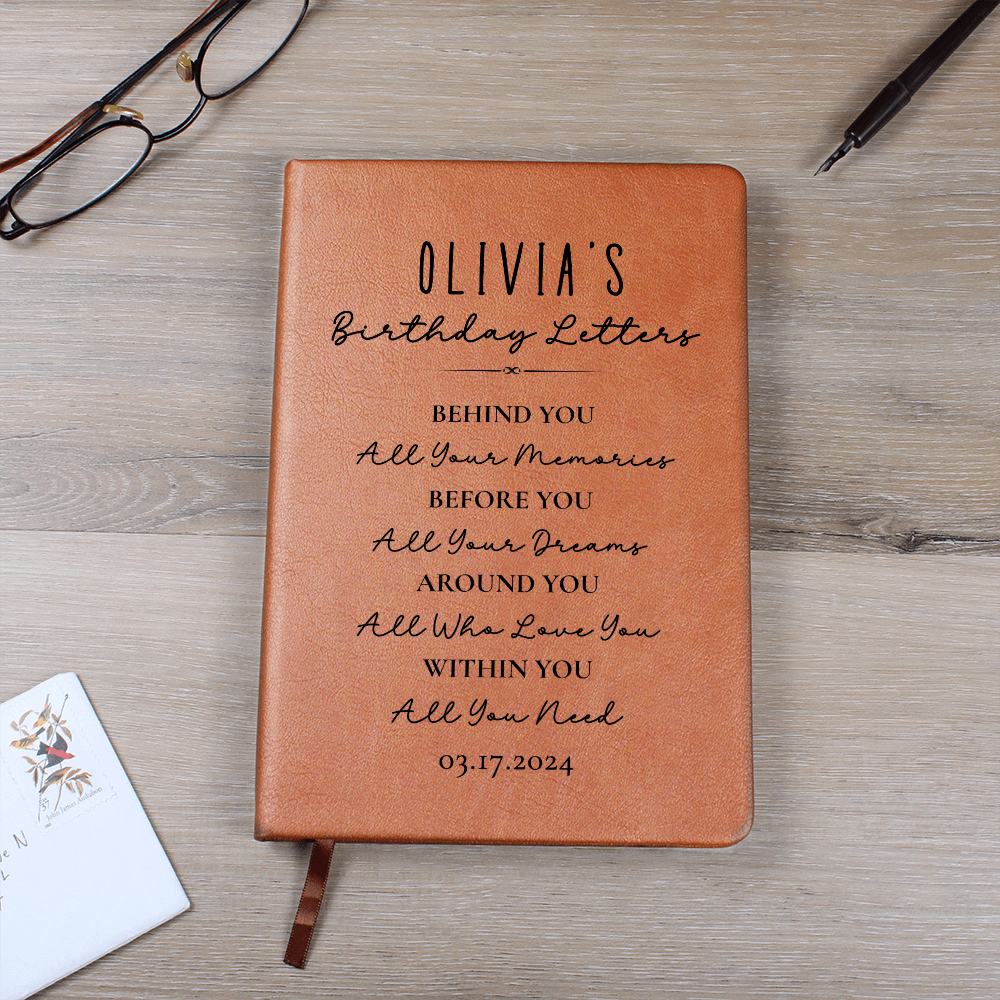 OLIVIA'S
Birthday Letters
BEHIND YOU
All Your Memories
BEFORE YOU
All Your Dreams
AROUND YOU
All Who Love You
WITHIN YOU
All You Need
03.17.2024
37
John James Audubon
N
L